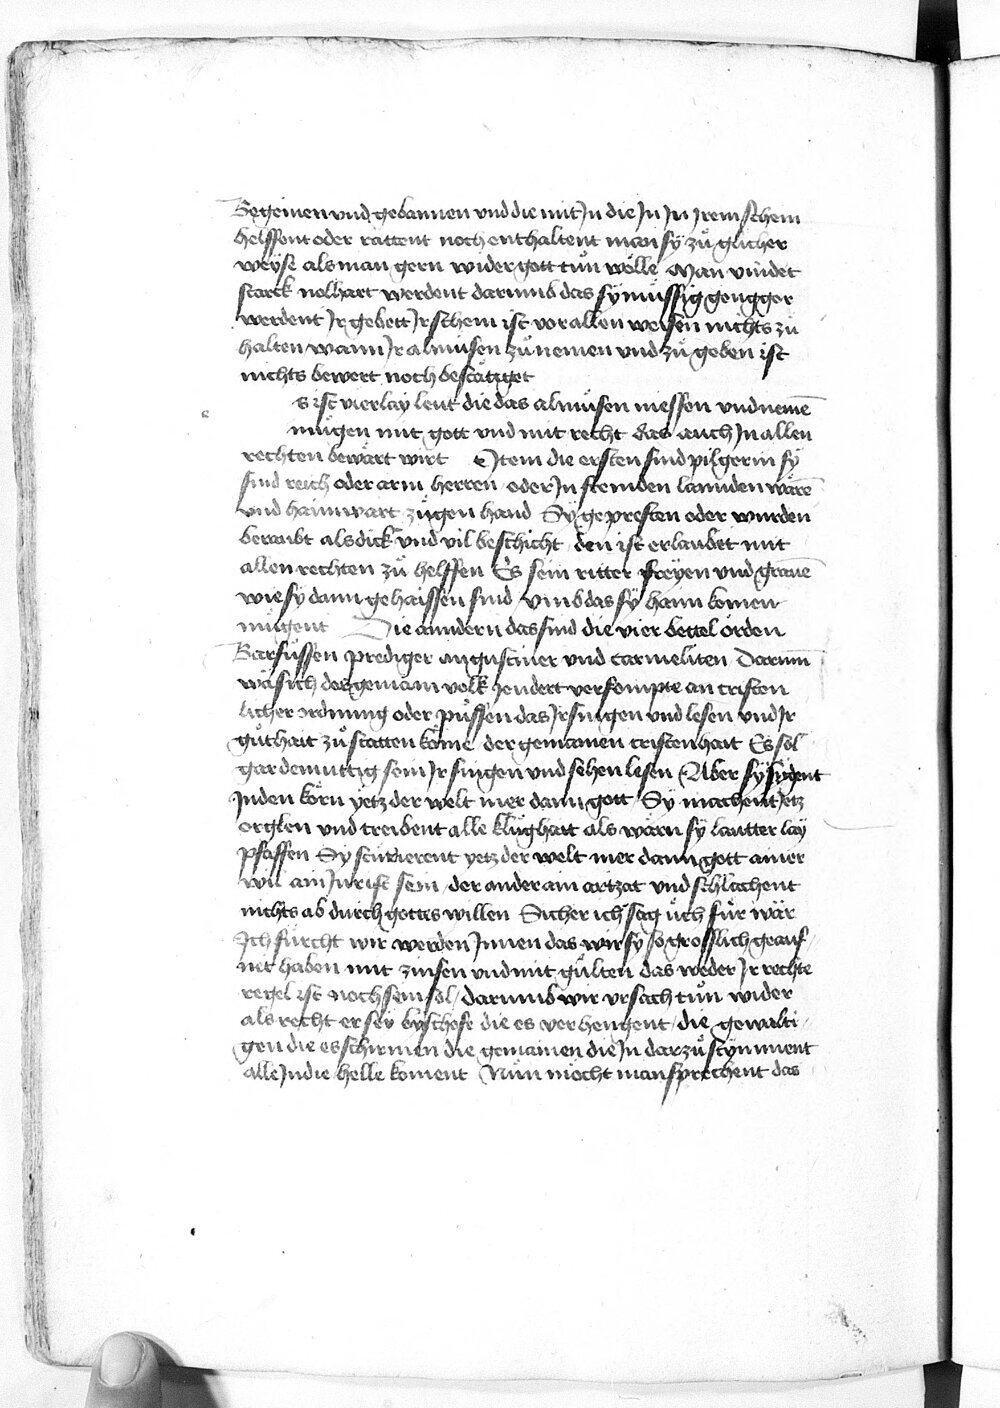 Begeinen vnd gebannen vnd die mit Jn die Jn Jn Jrem schein
helffent oder rattent noch enthaltent man sÿ zů glicher
weÿse als man gern wider gott tůn wölle Man vindet
starck nolhart werdent darumb das sÿ müssig gengger
werdent Jr gebett Jr schein ist vor allen weisen nichts zu
halten wann Jr almůsen zů nemen vnd zů geben ist
nichts bewert noch bestättget
e s ist vierlay leut die das almůsen niessen vnd neme̅
mügen mit gott vnd mit recht das auch Jn allen
rechten bewärt wirt Item die ersten sind pilgerin sÿ
sind reich oder arm herren oder Jn fremden lannden wäre̅
vnd haimwart zügen hand Sÿ gepresten oder wurden
beraubt als dick vnd vil beschicht den ist erlaubet mit
allen rechten zů helffen Es sein ritter freÿen vnd graue̅
wie sÿ dann gehaissen sind vmb das sÿ hann komen
mügent Die anndern das sind die vier bettel örden
Barfůssen prediger augustiner vnd carmeliten Darum̅
wa sich des gemain volk hendert versompte an cristen
licher ordnung oder půssen das Jr singen vnd lesen vnd Jr
gůthait zů statten köme der gemainen cristenhait Es sol
gar demüttig sein Jr singen vnd sehen lesen Aber sÿ sÿgent
Jn den körn yetz der welt mer dann gott Sÿ machent Jetz
orglen vnd treibent alle klůghait als wärn sÿ lautter lay
pfaffen Sÿ studierent yetz der welt mer dann gott ainer
wil ain Jurist sein der ander ain artzat vnd schlachent
nichts ab durch gottes willen Sicher ich sag üch für wär
Jch fürcht wir werden Jnnen das wir sÿ so grosslich geauf
net haben mit zinsen vnd mit gülten das weder Jr rechte
regel ist noch sein sol darumb wir vrsach tůn wider
als recht er seÿ byschofe die es verhengent die gewalti
gen die es schirmen die gemainen die Jn darzů stÿmment
alle Jn die helle koment Nůn möcht man sprechent das